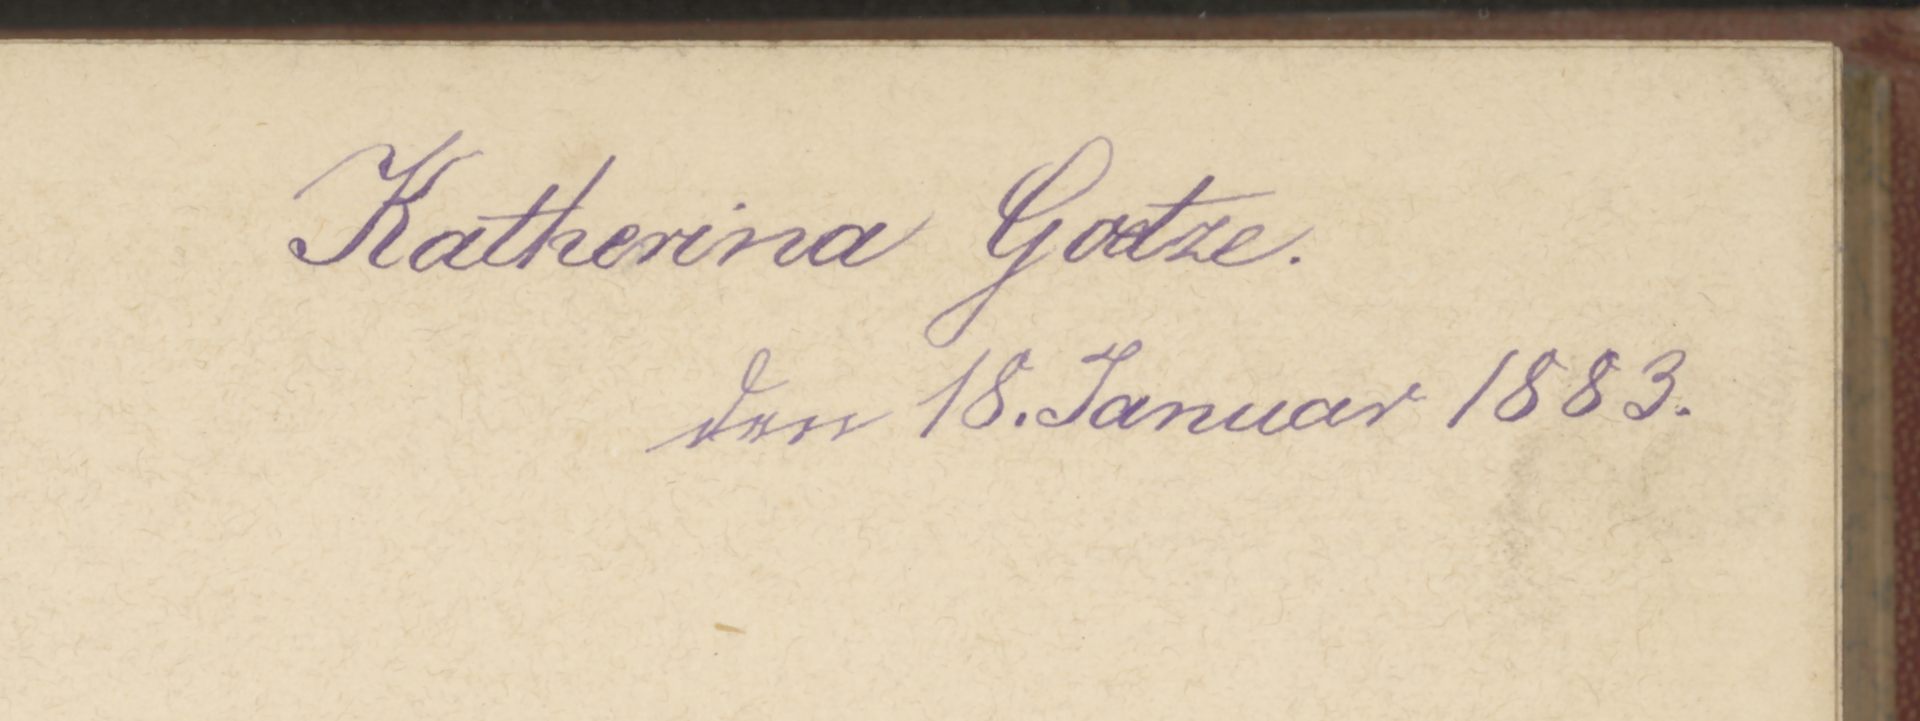 Katherina Goetze.
den 18. Januar 1883.